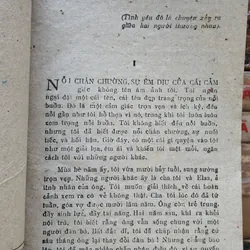 (Tình yêu đó là chuyện xảy ra
giữa hai người thương nhau)
I
NỖI CHÁN CHƯỜNG, SỰ ÊM DỊU CỦA CÁI CẢM
giác không tên ám ảnh tôi. Tôi ngần
ngại đặt một cái tên, cái tên đẹp trang trọng của nỗi
buồn. Đó là một cảm giác trọn vẹn và ích kỷ, đến
nỗi tôi gần như hổ thẹn, trong khi tôi luôn luôn xem
trọng nỗi buồn. Tôi không biết đến nỗi buồn, nhưng
tôi đã biết được nỗi chán chường, sự nuối
tiếc, và đôi khi, hối hận. Giờ đây có một cái gì gói
như một giải lụa, êm ái và khích động, ngăn cách tôi
với những người khác.
Mùa hè năm ấy, tôi vừa mười bảy tuổi, sung sướng trọn
vẹn. Những người khác ấy là cha tôi và Elsa,
tình nhân của ông. Tôi muốn giải thích
xem ra có vẻ không thật. Cha tôi lúc đó đã tứ
tuần, góa vợ được mười lăm năm. Ông còn trẻ trung,
đầy sinh lực, đầy tài năng. Hai năm sau, khi ra khỏi nội
trú, tôi biết rằng ông vẫn sống với một người
đàn bà. Bất đắc dĩ, tôi đã phải công nhận rằng cứ
sáu tháng ông lại thay đổi đàn bà! Nhưng sau đó tôi